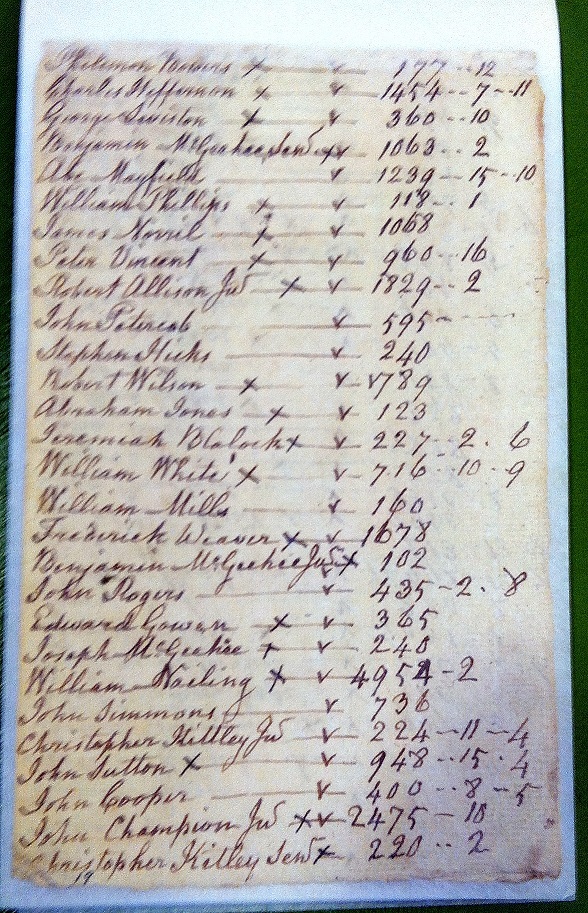 Philemon Bowers x — v — 177 -- 12
Charles Heffernon x — v — 1454 -- 7 -- 11
George Lewiston x — v — 360 -- 10
Benjamin McGeehee Senr x v — 1063 -- 2
Abe Mayfield — v — 1239 -- 15 -- 10
William Phillips x — v — 118 -- 1
James Norril — x — v — 1068
Peter Vincent — x — v — 960 -- 16
Robert Allison Jur x — v — 1829 -- 2
John — v — 595
Stephen Hicks — v — 240
Robert Wilson — x — v — v789
Abraham Jones x — v — 123
Jeremiah Blalock x — v — 227 -- 2 . 6
William White x — v — 716 -- 10 -- 9
William Mills — v — 160
Frederick Weaver x — v — 1678
Benjamin McGeehee Jur x 102
John Rogers — v — 435 - 2 . 8
Edward Gowen — x — v — 365
Joseph McGeehee x — v — 240
William Nailing x — v — 4954 - 2
John Simmons — v — 736
Christopher Kittley Jur — v — 224 -- 11 -- 4
John Sutton x — v — 948 -- 15 . 4
John Cooper — v — 400 -- 8 -- 5
John Champion Jur x v — 2475 - 10
Christopher Kitley Senr x — 220 -- 2